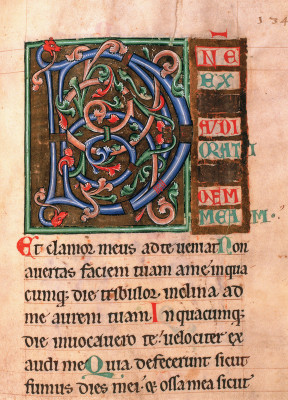 D
NE
EX
AUDI
ORATI
ONEM
MEAM.
Et clamor meus ad te veniat Non
avertas faciem tuam a me inqua
cumq; die tribulor inclina ad
me aurem tuam In quacumq;
die invocavero te velociter ex
audi me Quia defecerunt sicut
fumus dies mei & ossa mea sicut